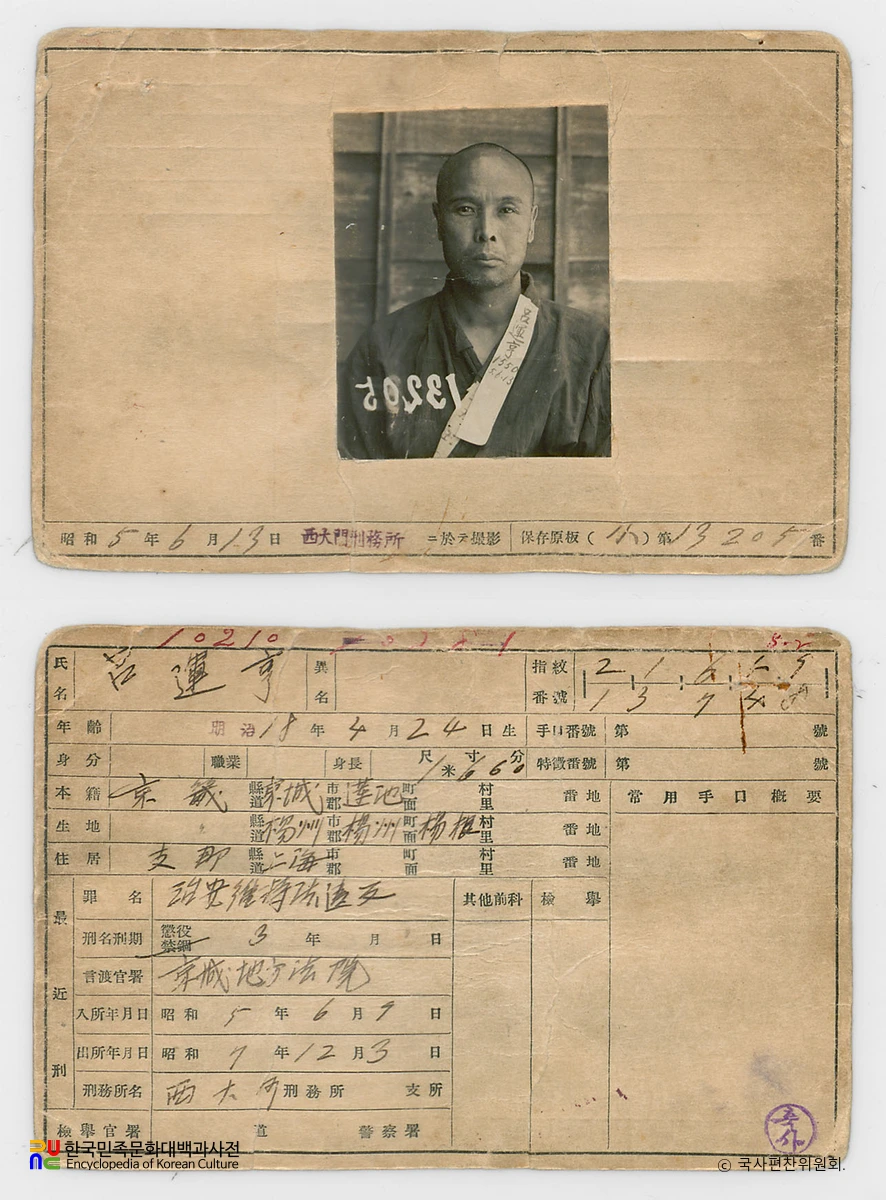 呂運亨
1550
5.6.13
13205
昭和5年6月13日 西大門刑務所 ニ於テ撮影 保存原板(小)第13205番
10210
5.2
氏名 呂運亨 異名 指紋番號 2 1 6
1 3 7
年齡 明治18年4月24日生 手口番號 第 號
身分 職業 身長 尺寸分 1米660 特徵番號 第 號
本籍 京畿 縣道 京城 市郡 蓮池 町面 村里 番地 常用手口概要
生地 縣道 楊州 市郡 楊州 町面 楊根 村里 番地
住居 支那 縣道 上海 市郡 町面 村里 番地
最近刑
罪名 治安維持法違反 其他前科 檢擧
刑名刑期 懲役 禁錮 3年 月 日
言渡官署 京城地方法院
入所年月日 昭和5年6月9日
出所年月日 昭和7年12月3日
刑務所名 西大門刑務所 支所
檢擧官署 道 警察署
한국민족문화대백과사전
Encyclopedia of Korean Culture
© 국사편찬위원회.